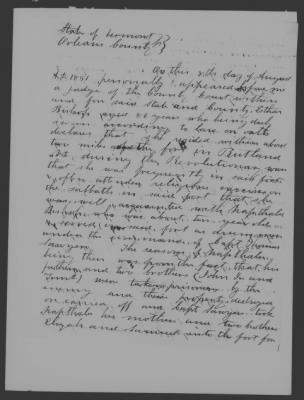 State of Vermont }
Orleans County }
On this 8th day of August
A.D. 1851 personally appeared before me
a judge of the County Court within
and for said State and County,
Bishop aged 86 years who being duly
sworn according to law on oath
declares that she resided within about
two miles the fort in Rutland
during the Revolutionary war
that she was frequently in said fort
& often attended religious exercises on
the sabbath in said fort, that she
was well acquainted with Naphthala
who was about ten years old
served in said fort as drummer
under the command of Capt Thomas
Sawyer. The reason of Naphthala
being there was upon the fact that his
father and two brothers (John
) were taken prisoners by the
enemy and their property destroyed
or carried off and Capt Sawyer took
Naphthala his mother and two brothers
Elijah and into the fort for